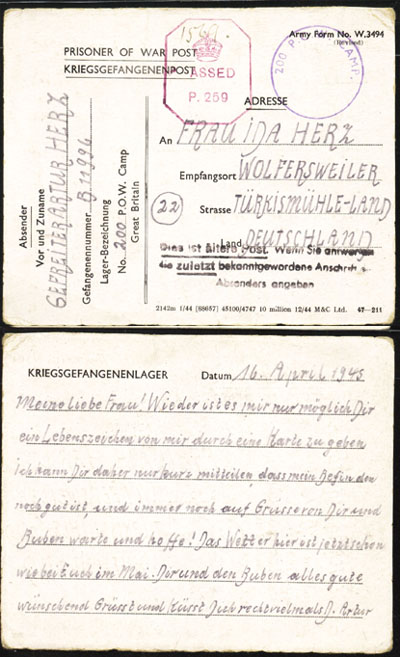 Army Form No. W.3494
PRISONER OF WAR POST
KRIEGSGEFANGENENPOST
PASSED
P. 259
200 P.O.W. CAMP.
ADRESSE
An FRAU IDA HERZ
Empfangsort WOLFERSWEILER
22
Strasse TÜRKISMÜHLE-LAND
Land DEUTSCHLAND
Dies ist ältere Post. Wenn Sie antworten
die zuletzt bekanntgewordene Anschrift
Absenders angeben
2142m 1/44 (88657) 45100/4747 10 million 12/44 M&C Ltd. 47-211
Absender
Vor und Zuname GEFREITER ARTUR HERZ
Gefangenennummer B 11994
Lager-Bezeichnung
No. 200 P.O.W. Camp
Great Britain
KRIEGSGEFANGENENLAGER Datum 16. April 1945
Meine liebe Frau! Wieder ist es mir nur möglich Dir
ein Lebenszeichen von mir durch eine Karte zu geben
ich kann Dir daher nur kurz mitteilen dass mein Befinden
noch gut ist, und immer noch auf Grüsse von Dir und
Buben warte und hoffe! Das Wetter hier ist jetzt schon
wie bei Euch im Mai. Dir und den Buben alles gute
wünschend Grüsst und Küsst Dich recht vielmals D. Artur